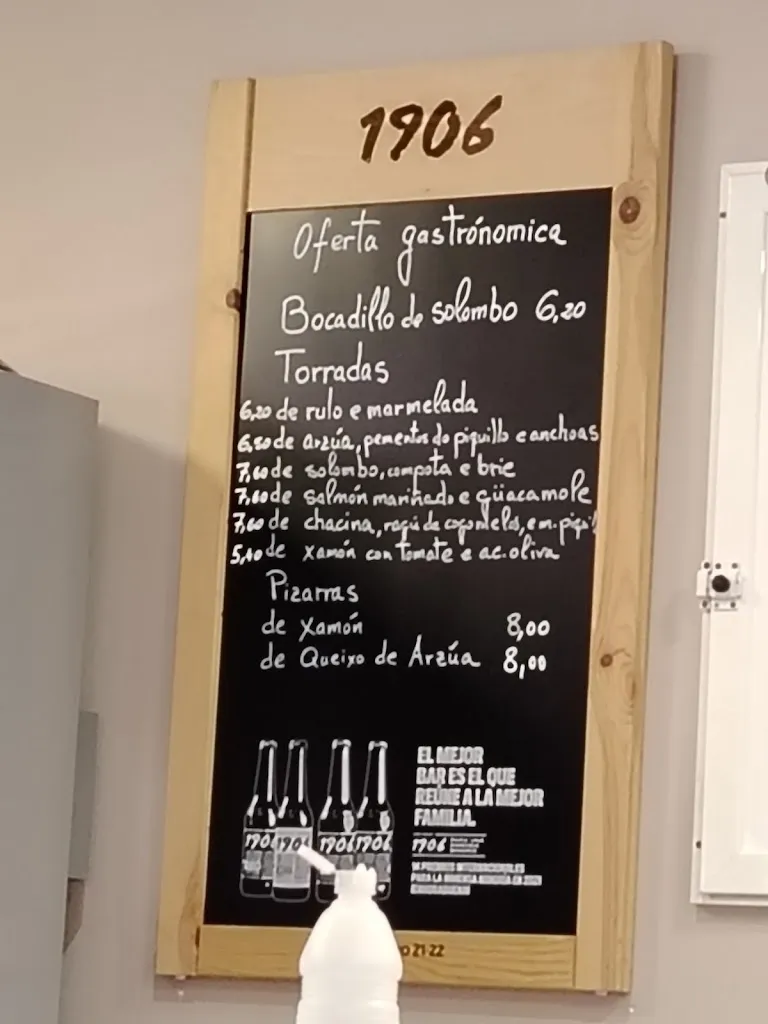 1906
Oferta gastrónomica
Bocadillo de solombo 6,20
Torradas
6,20 de rulo e marmelada
6,50 de arzúa, pementos do piquillo e anchoas
7,60 de solombo, compota e brie
7,60 de salmón mariñado e güacamole
7,60 de chacina, ragú de cogomelos, e m. piqui
5,40 de xamón con tomate e ac. oliva
Pizarras
de xamón 8,00
de Queixo de Arzúa 8,00
EL MEJOR
BAR ES EL QUE
REÚNE A LA MEJOR
FAMILIA.
1906 1906 1906 1906
1906
21-22